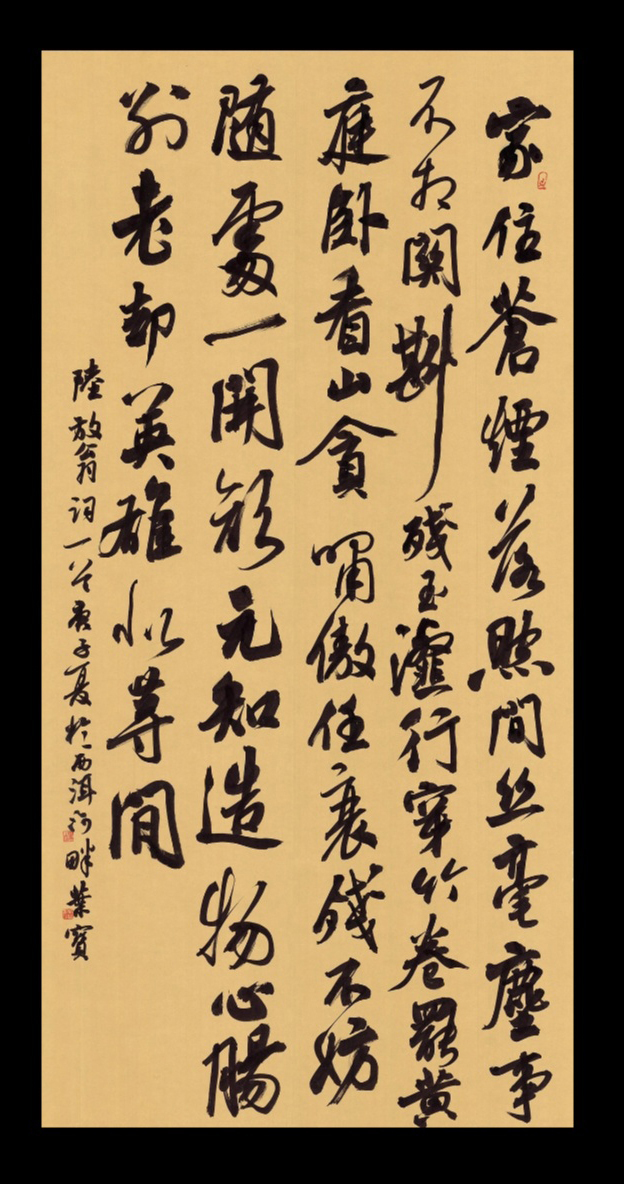 家住蒼煙落照間絲毫塵事
不相關斟殘玉瀣行穿竹卷罷黃
庭臥看山貪嘯傲任衰殘不妨
隨處一開顏元知造物心腸
別老卻英雄似等閒
陸放翁詞一首庚子夏於西洱河畔業寶